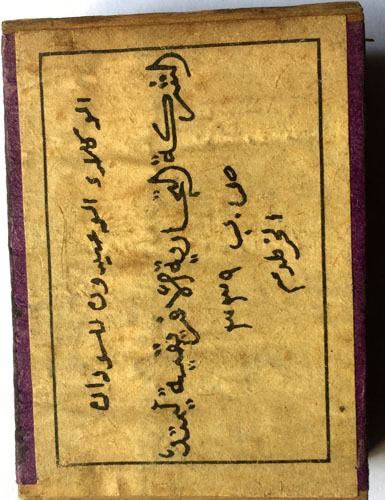 الوكلاء الوحيدون للسودان
الشركة التجارية الافريقية ليمتد
ص.ب ٣٣٩
الخرطوم